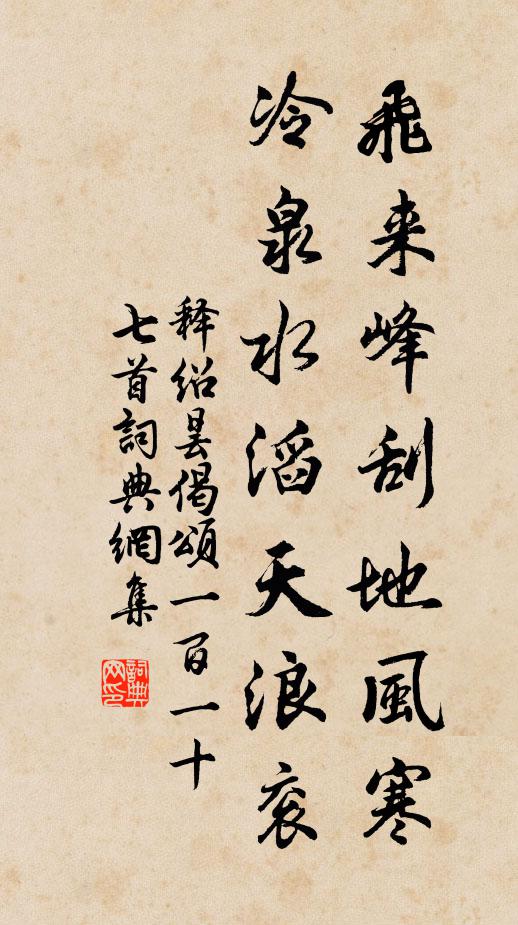 飛来峰刮地風寒
冷泉水滔天浪衮
釋紹曇偈頌一百一十
七首詞典網集
詞典网印